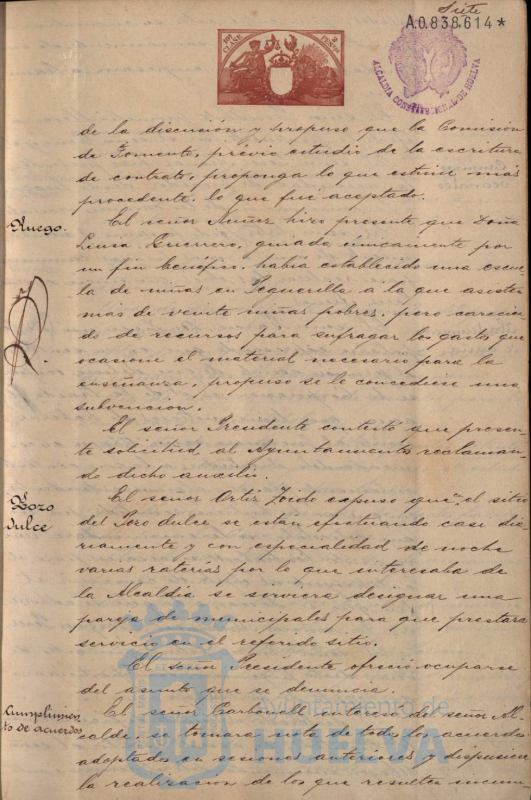 Siete
A.0.838.614*
10ª CLASE 2 PESETAS
ALCALDIA CONSTITUCIONAL DE HUELVA
de la discusión y propuso que la Comisión
de Fomento, prévio estudio de la escritura
de contrato, proponga lo que estime más
procedente, lo que fué aceptado.
Ruego.
El señor Nuñez hizo presente que Doña
Luisa Guerrero, guiada únicamente por
un fin benéfico, había establecido una escue
la de niñas en Peguerilla á la que asisten
más de veinte niñas pobres, pero carecien
do de recursos para sufragar los gastos que
ocasione el material necesario para la
enseñanza, propuso se le concediese una
subvencion.
El señor Presidente contestó que presen
te solicitud al Ayuntamiento reclaman
do dicho auxilio.
Pozo dulce
El señor Ortiz Toido expuso que en el sitio
del Pozo dulce, se están efectuando casi dia
riamente y con especialidad de noche
varias raterías por lo que interesaba de
la Alcaldía se sirviera designar una
pareja de municipales para que prestara
servicio en el referido sitio.
El señor Presidente ofreció ocuparse
del asunto que se denuncia.
Cumplimien
to de acuerdos
El señor Carbonell interesó del señor Al
calde, se tomara nota de todos los acuerdos
adoptados en sesiones anteriores y dispusiese
la realizacion de los que resulten incum
Ayuntamiento de
HUELVA